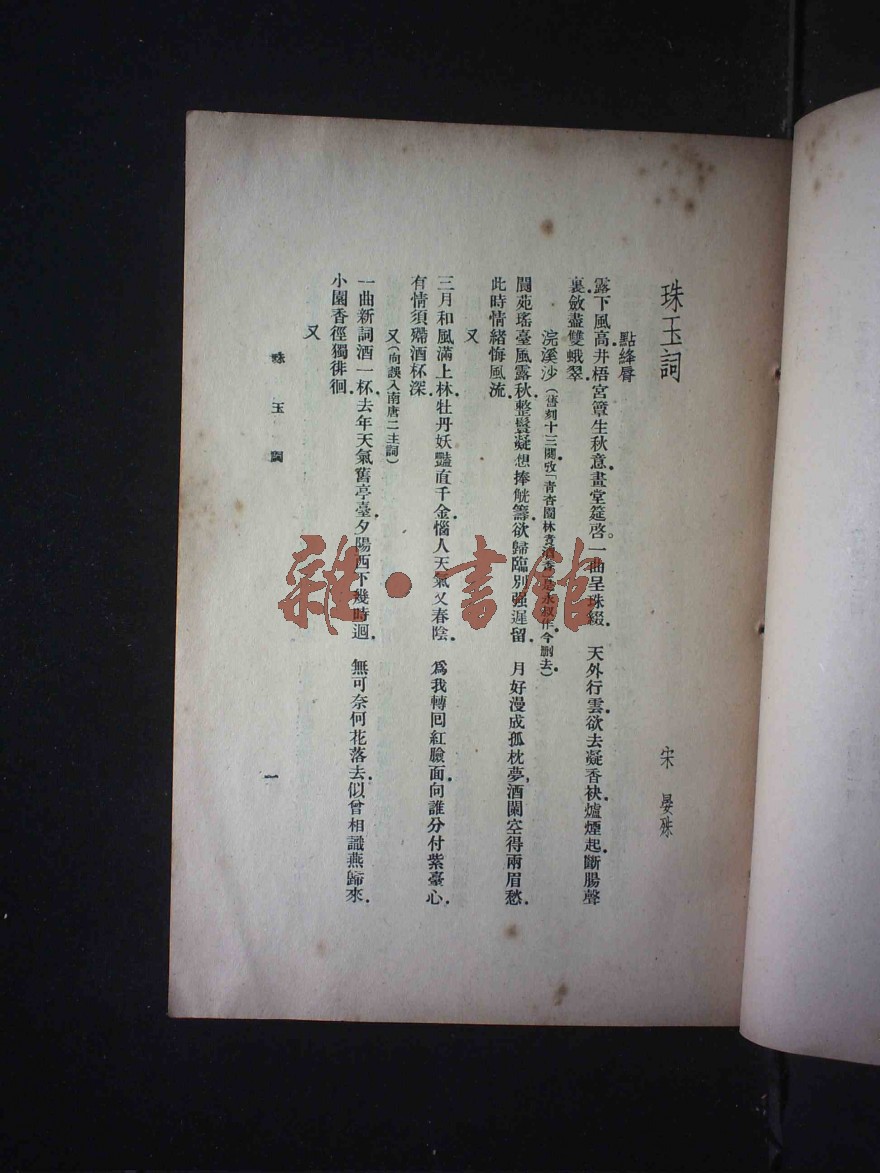 珠玉詞
宋 晏殊
點絳脣
露下風高.井梧宮簟生秋意.畫堂筵啓。一曲呈珠綴. 天外行雲.欲去凝香袂.爐煙起.斷腸聲
裏.斂盡雙蛾翠.
浣溪沙(舊刻十三闋.攷「青杏園林煮酒香」是永叔作.今刪去.)
閬苑瑤臺風露秋.整鬟凝想捧觥籌.欲歸臨別强遲留. 月好漫成孤枕夢.酒闌空得兩眉愁.
此時情緒悔風流.
又
三月和風滿上林.牡丹妖豔直千金.惱人天氣又春陰. 爲我轉回紅臉面.向誰分付紫臺心.
有情須殢酒杯深.
又(向誤入南唐二主詞)
一曲新詞酒一杯.去年天氣舊亭臺.夕陽西下幾時迴. 無可奈何花落去.似曾相識燕歸來.
小園香徑獨徘徊.
又
珠玉詞
一
雜·書館